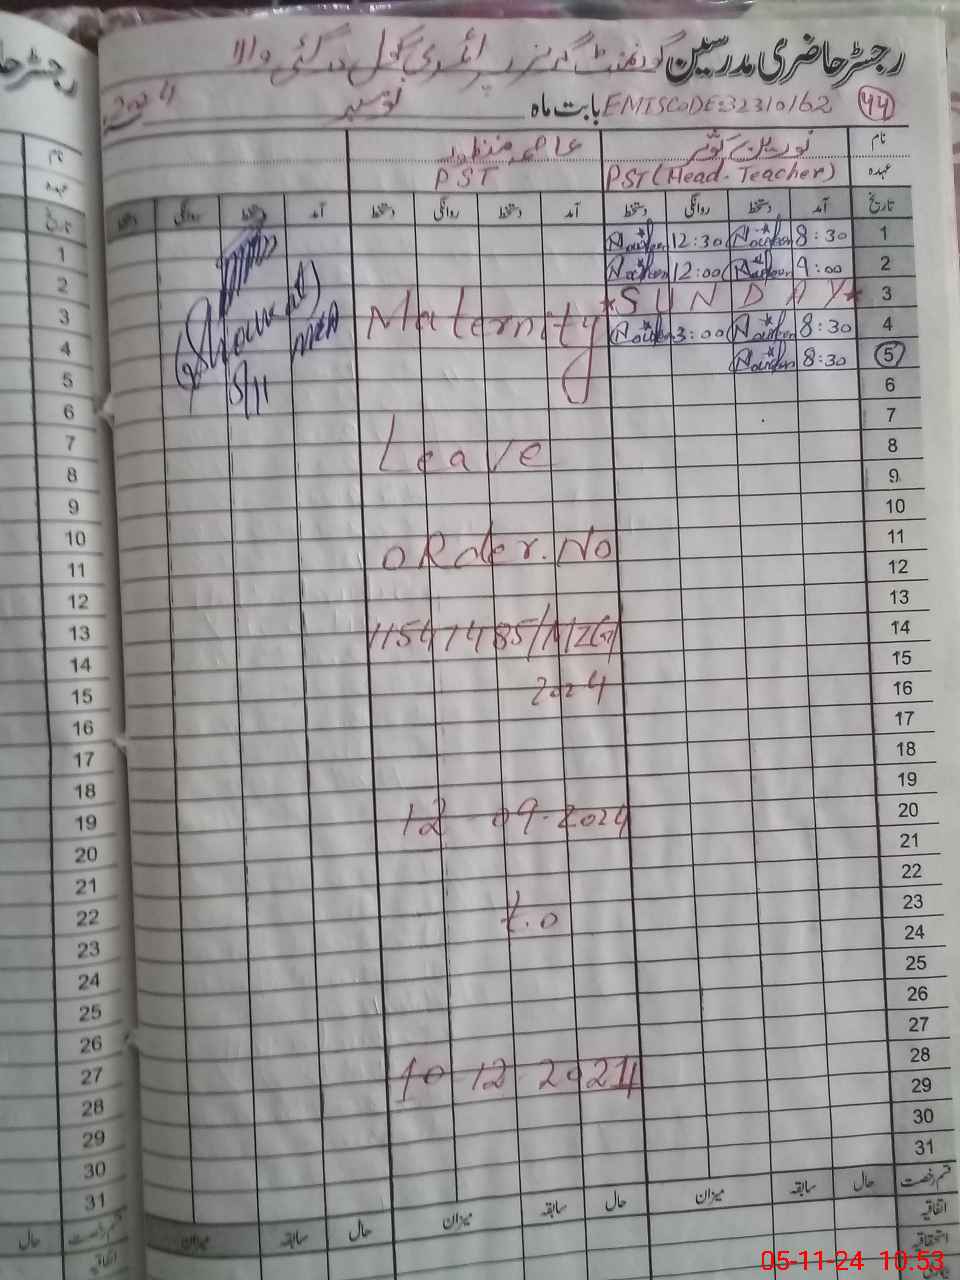 رجسٹر حاضری مدرسین گورنمنٹ گرلز پرائمری سکول درگئی والا
44 EMISCODE:32310162 بابت ماہ نومبر 2024
نام نورین کوثر عاصمہ منظور
عہدہ PST (Head-Teacher) PST
تاریخ آمد دستخط روانگی دستخط آمد دستخط روانگی دستخط آمد دستخط روانگی دستخط
1 8:30 Noureen 12:30 Noureen
2 9:00 Noureen 12:00 Noureen
3 *SUNDAY*
4 8:30 Noureen 3:00 Noureen
5 8:30 Noureen
Maternity
MEA
5/11
6
7
8
Leave
9
10
11
Order.No
12
13
14
15
2024
16
17
18
19
20
12 09-2024
21
22
23
t.o
24
25
26
27
28
10 12 2024
29
30
31
قسم رخصت حال سابقہ میزان حال سابقہ میزان حال سابقہ میزان
اتفاقیہ
استحقاقیہ
رجسٹر حا
نام
عہدہ
تاریخ
1
2
3
4
5
6
7
8
9
10
11
12
13
14
15
16
17
18
19
20
21
22
23
24
25
26
27
28
29
30
31
قسم رخصت حال
اتفاقیہ
05-11-24 10:53